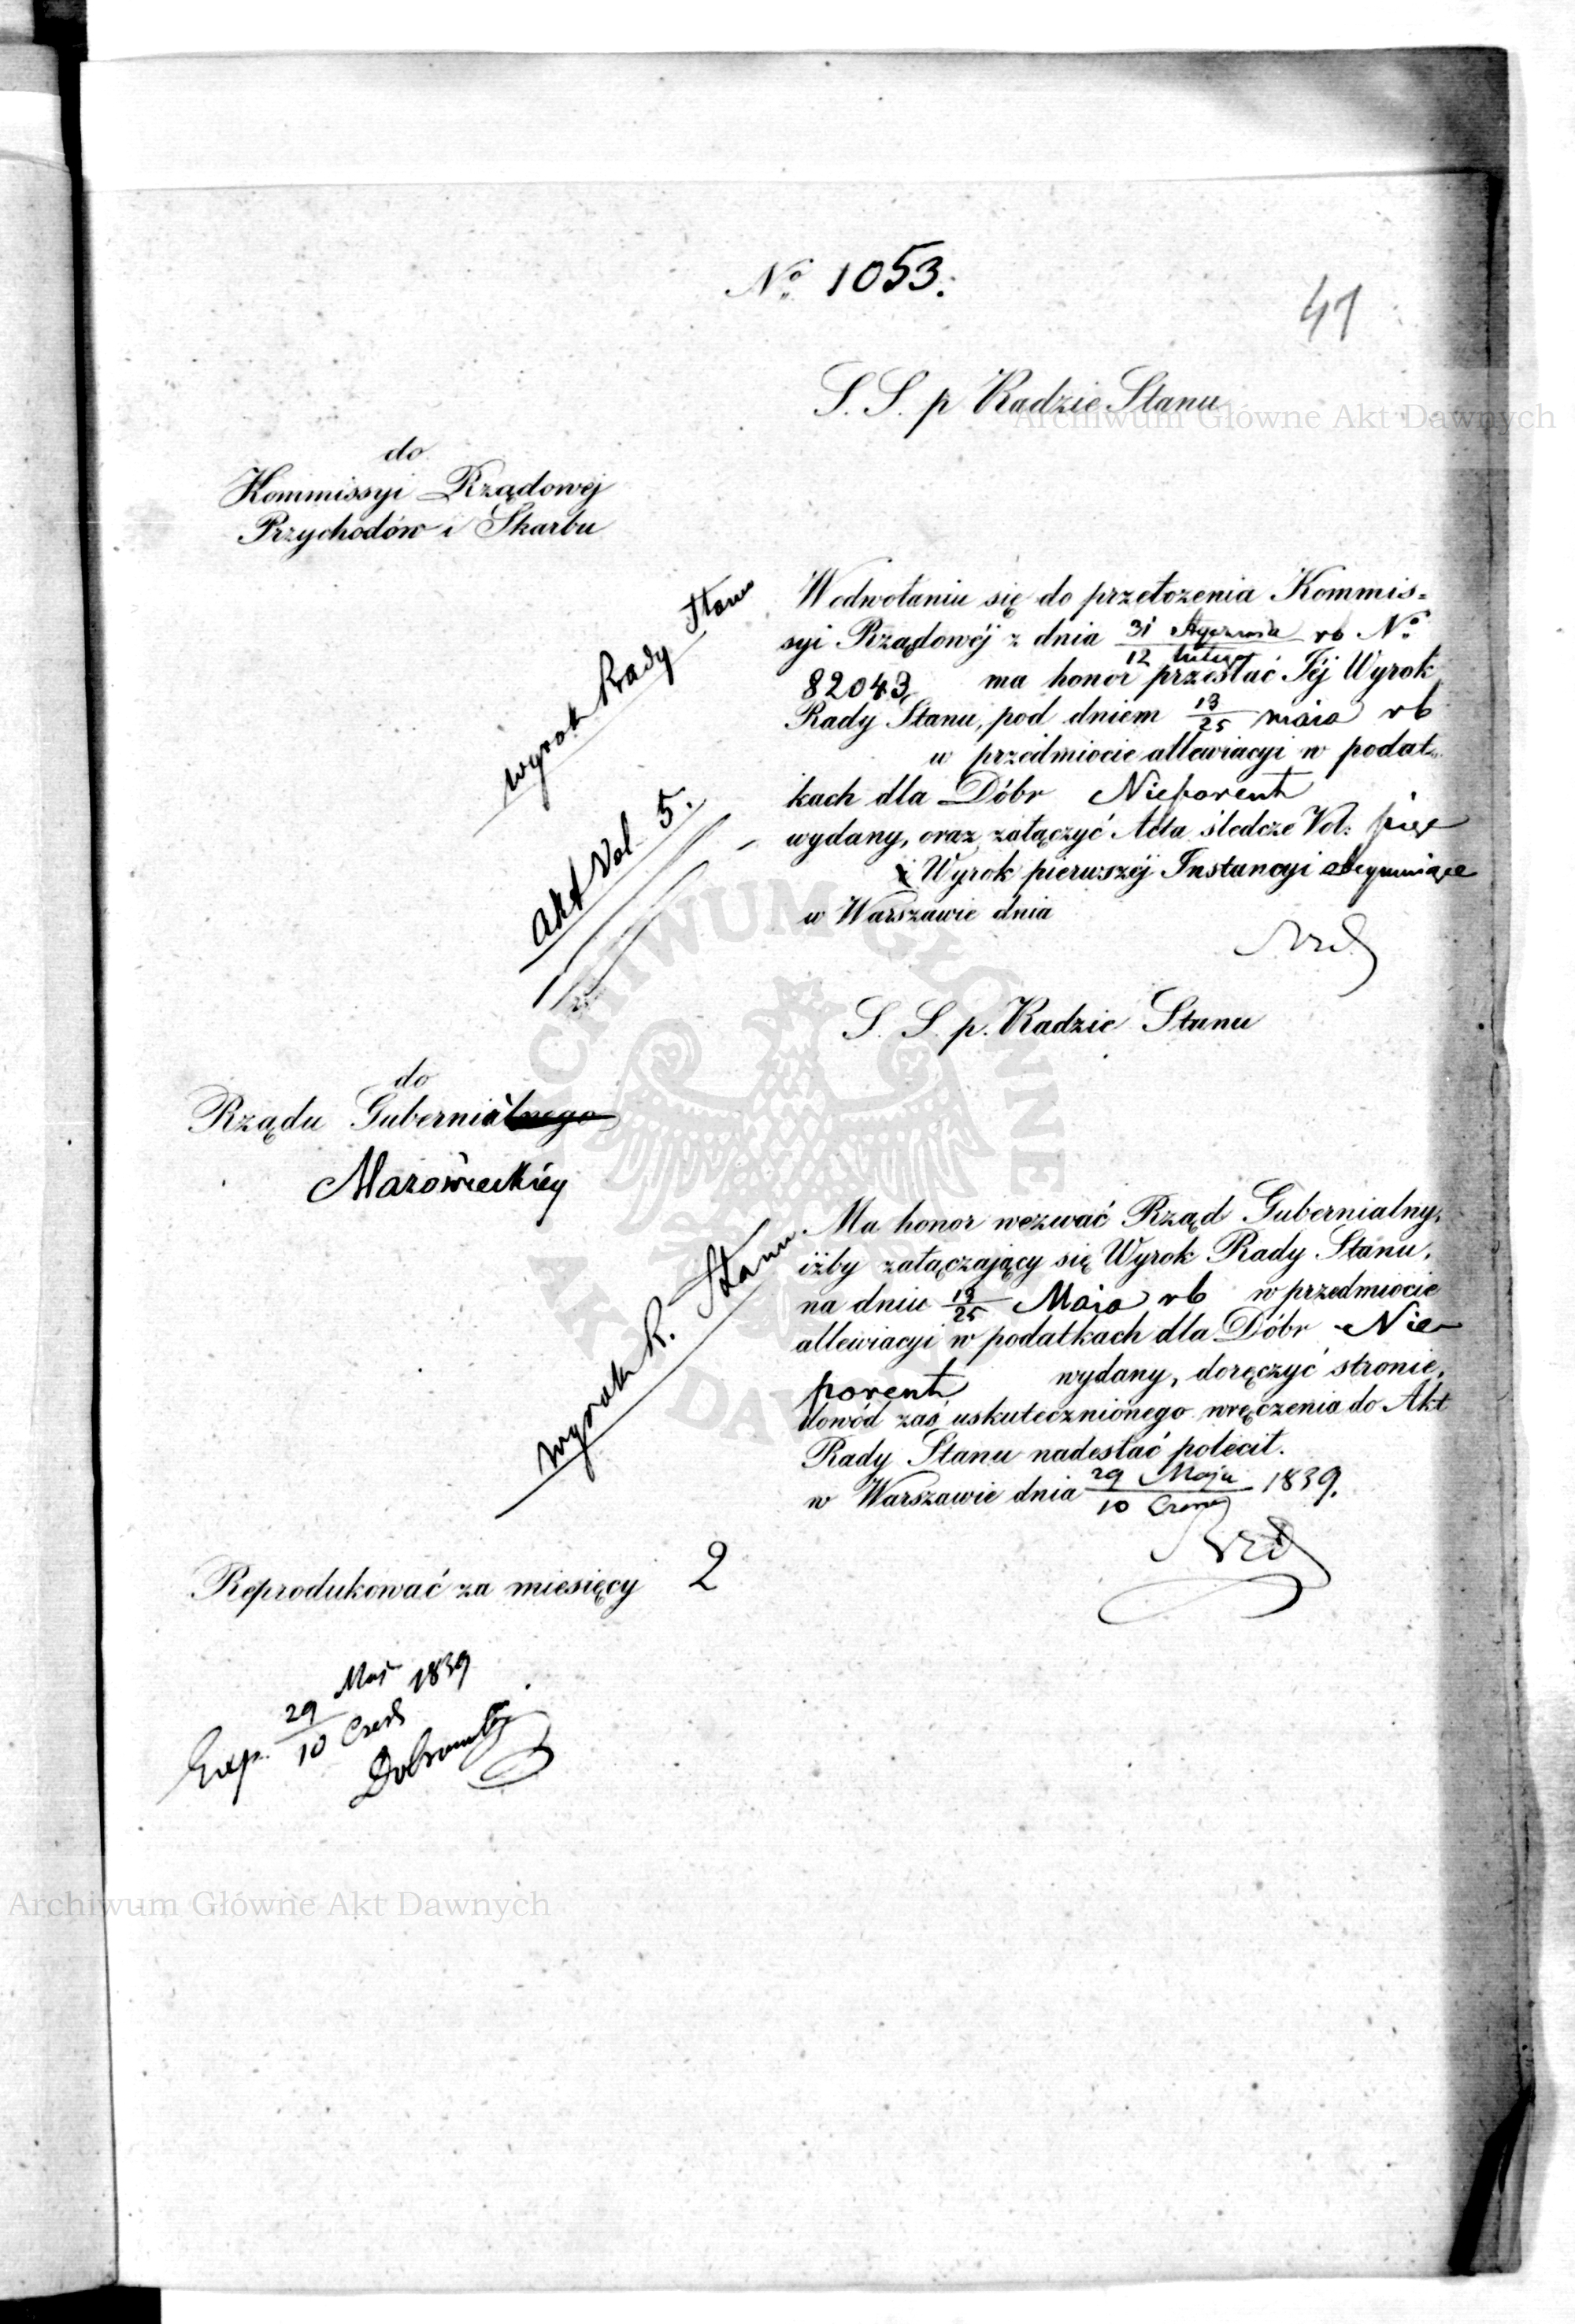 No 1053.
41
S. S. p Radzie Stanu
do
Kommissyi Rządowej
Przychodów i Skarbu
W odwołaniu się do przełożenia Kommis=
syi Rządowéj z dnia 31 Stycznia / 12 lutego rb No
82043 ma honor przesłać Jéj Wyrok
Rady Stanu, pod dniem 13/25 maia rb
w przedmiocie allewiacyi w podat=
kach dla Dóbr Nieporent
wydany, oraz załączyć Akta śledcze Vol: pięć
i Wyrok pierwszéj Instancyi obeymujące
w Warszawie dnia
wyrok Rady Stanu
Akt Vol 5.
S. S. p. Radzie Stanu
do
Rządu Gubernialnego
Mazowieckiey
Ma honor wezwać Rząd Gubernialny,
iżby załączający się Wyrok Rady Stanu,
na dniu 13/25 Maia rb w przedmiocie
allewiacyi w podatkach dla Dóbr Nie-
porent wydany, doręczyć stronie,
dowód zaś uskutecznionego wręczenia do Akt
Rady Stanu nadesłać polecił.
w Warszawie dnia 29 Maja / 10 Czerw 1839.
wyrok R. Stanu
Reprodukować za miesięcy 2
Exp. 29 Maj / 10 Czerw 1839
Archiwum Główne Akt Dawnych
Archiwum Główne Akt Dawnych
ARCHIWUM GŁÓWNE AKT DAWNYCH